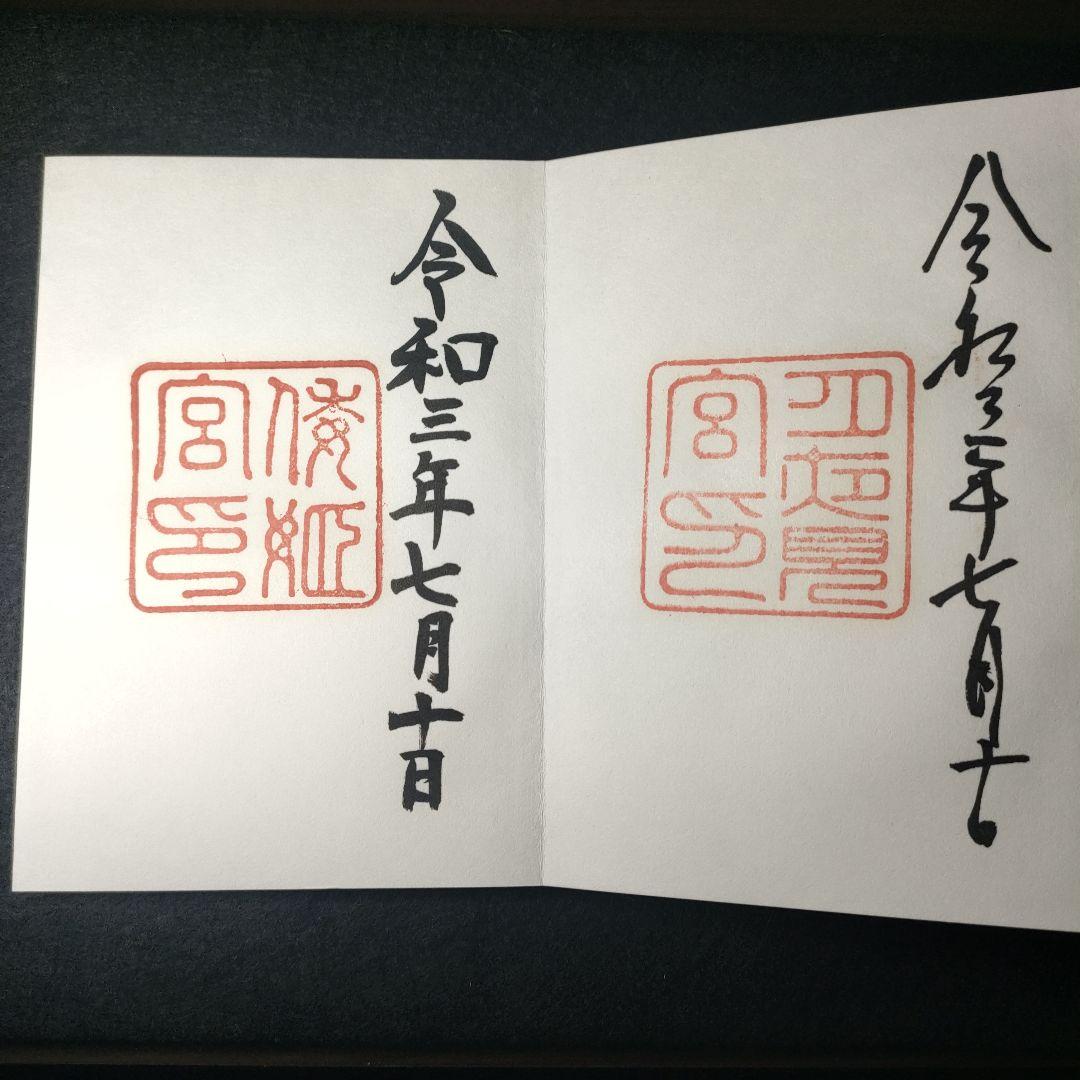 令和三年七月十日
月夜見
宮印
令和三年七月十日
倭姫
宮印